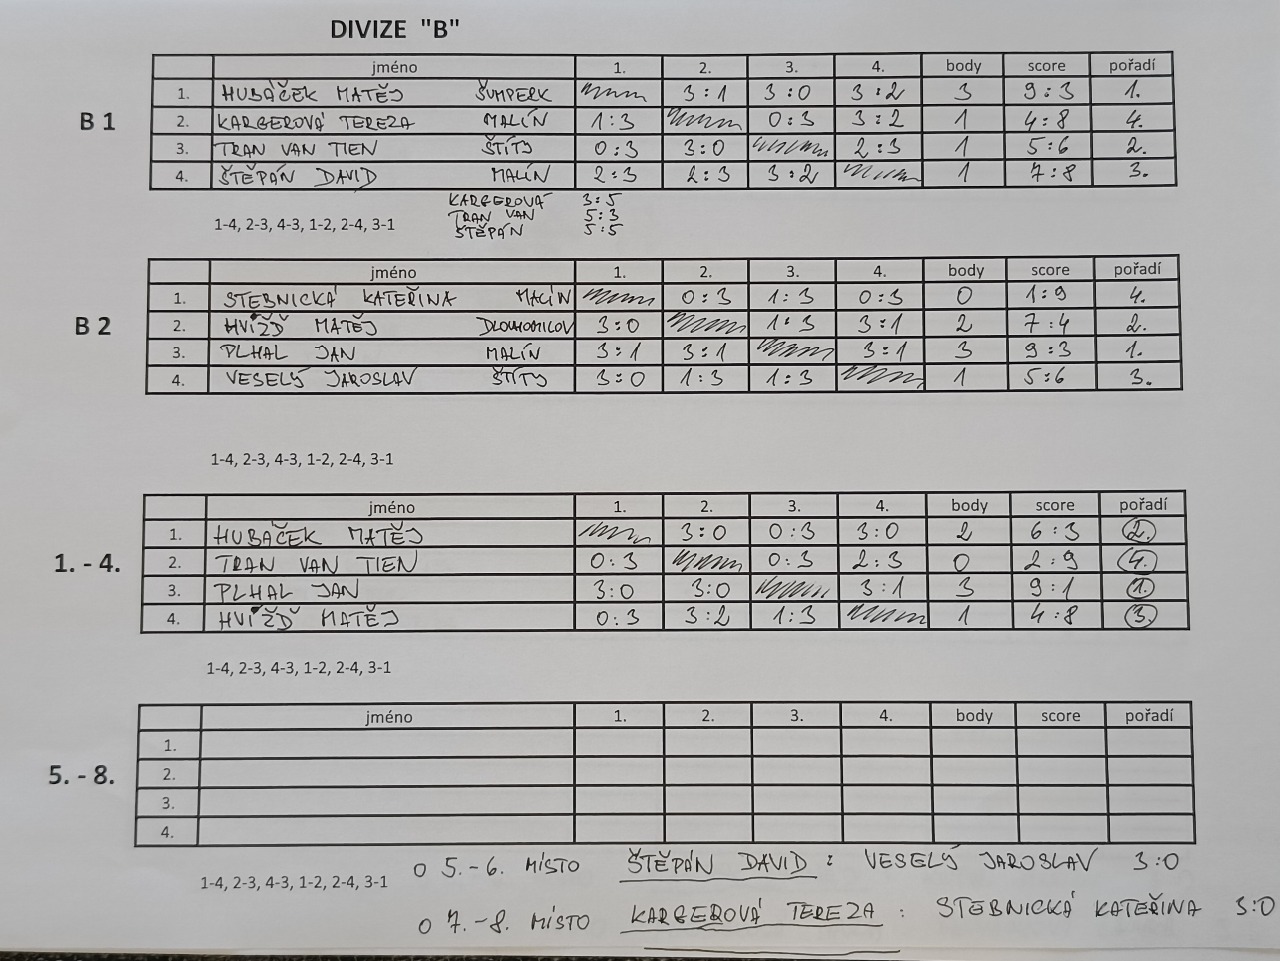 DIVIZE "B"
jméno 1. 2. 3. 4. body score pořadí
1. HUBÁČEK MATĚJ ŠUMPERK 3:1 3:0 3:2 3 9:3 1.
B 1
2. KARGEROVÁ TEREZA MALÍN 1:3 0:3 3:2 1 4:8 4.
3. TRAN VAN TIEN ŠTÍTY 0:3 3:0 2:3 1 5:6 2.
4. ŠTĚPÁN DAVID MALÍN 2:3 2:3 3:2 1 7:8 3.
KARGEROVÁ 3:5
TRAN VAN 5:3
1-4, 2-3, 4-3, 1-2, 2-4, 3-1
ŠTĚPÁN 5:5
jméno 1. 2. 3. 4. body score pořadí
1. STEBNICKÁ KATEŘINA MALÍN 0:3 1:3 0:3 0 1:9 4.
B 2
2. HVÍŽĎ MATĚJ DLOUHOMILOV 3:0 1:3 3:1 2 7:4 2.
3. PLHAL JAN MALÍN 3:1 3:1 3:1 3 9:3 1.
4. VESELÝ JAROSLAV ŠTÍTY 3:0 1:3 1:3 1 5:6 3.
1-4, 2-3, 4-3, 1-2, 2-4, 3-1
jméno 1. 2. 3. 4. body score pořadí
1. HUBÁČEK MATĚJ 3:0 0:3 3:0 2 6:3 2.
1. - 4.
2. TRAN VAN TIEN 0:3 0:3 2:3 0 2:9 4.
3. PLHAL JAN 3:0 3:0 3:1 3 9:1 1.
4. HVÍŽĎ MATĚJ 0:3 3:2 1:3 1 4:8 3.
1-4, 2-3, 4-3, 1-2, 2-4, 3-1
jméno 1. 2. 3. 4. body score pořadí
1.
5. - 8.
2.
3.
4.
O 5.-6. MÍSTO ŠTĚPÁN DAVID : VESELÝ JAROSLAV 3:0
1-4, 2-3, 4-3, 1-2, 2-4, 3-1
O 7.-8. MÍSTO KARGEROVÁ TEREZA : STEBNICKÁ KATEŘINA 3:0